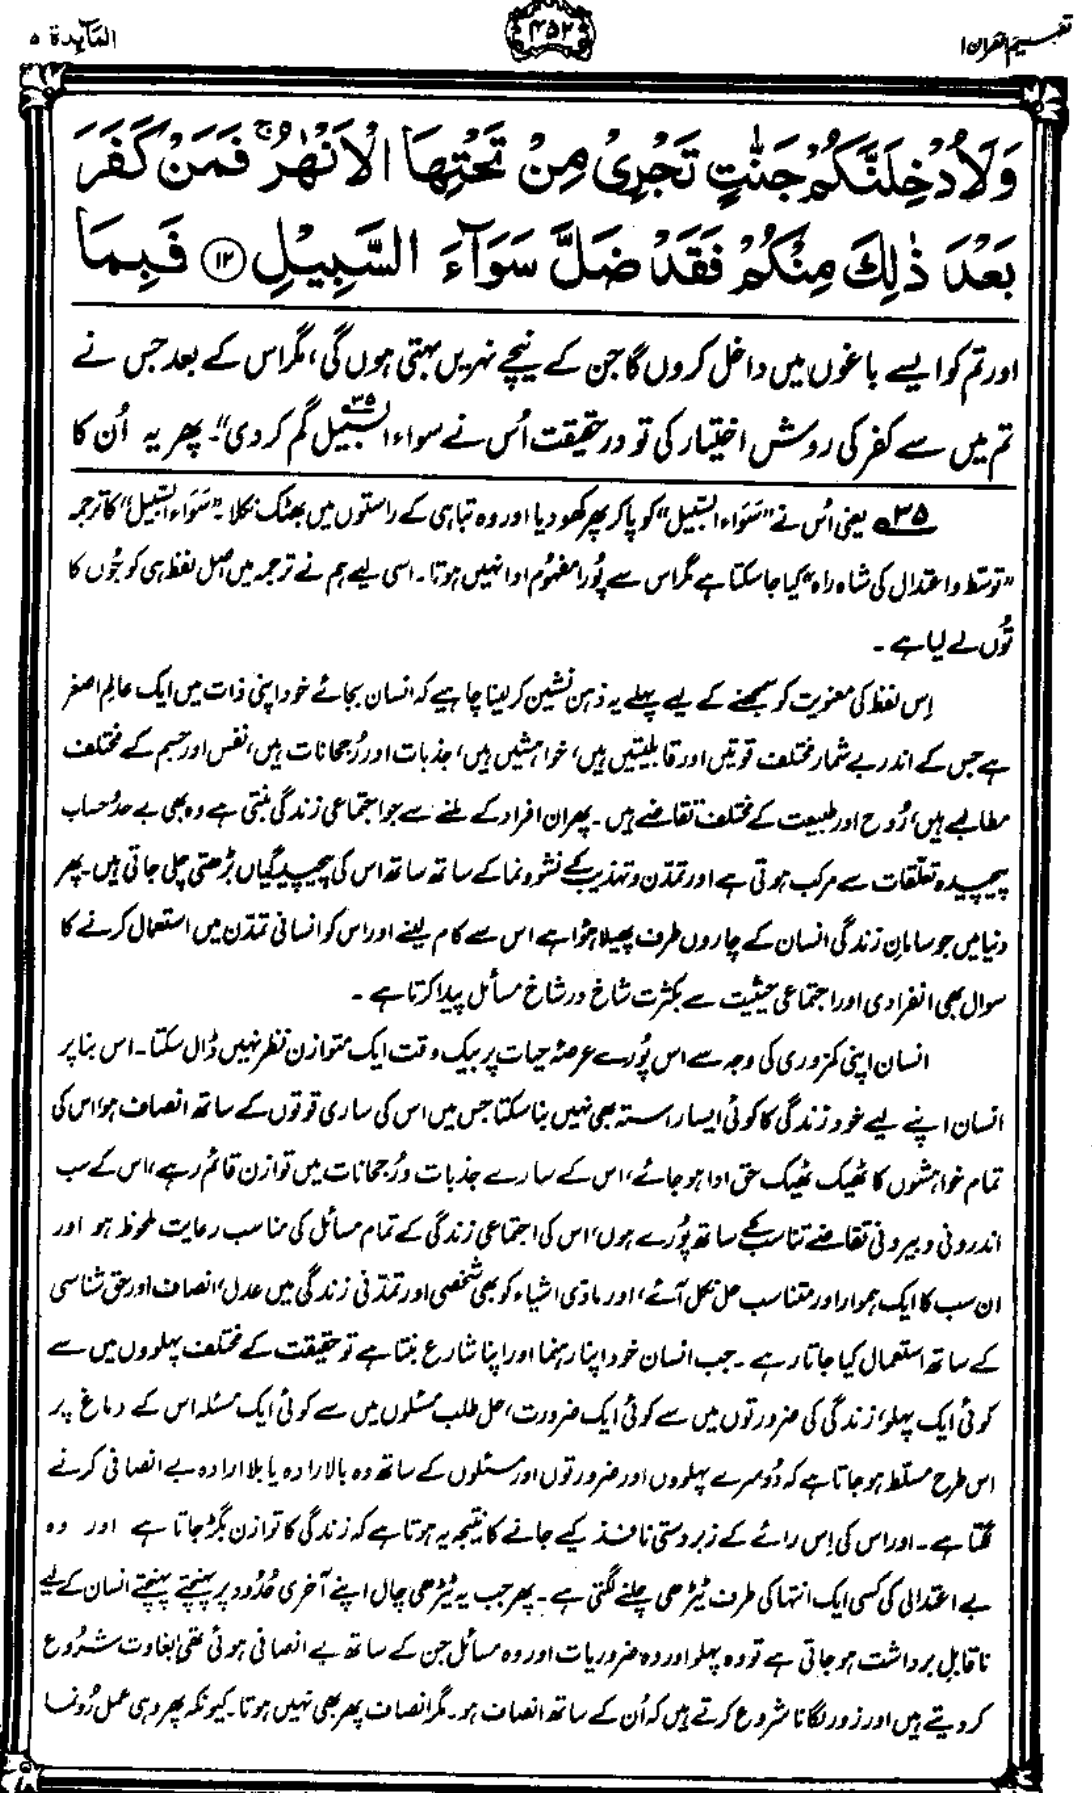 تفہیم القرآن ۱
۴۵۲
المَآىِٕدة ۵
وَلَاُدْخِلَنَّكُمْ جَنّٰتٍ تَجْرِیْ مِنْ تَحْتِهَا الْاَنْهٰرُ ۚ فَمَنْ كَفَرَ
بَعْدَ ذٰلِكَ مِنْكُمْ فَقَدْ ضَلَّ سَوَآءَ السَّبِیْلِ ۝۱۲ فَبِمَا
اور تم کو ایسے باغوں میں داخل کروں گا جن کے نیچے نہریں بہتی ہوں گی، مگر اس کے بعد جس نے
تم میں سے کفر کی روش اختیار کی تو درحقیقت اُس نے سواء السّبیل ۳۵ گم کر دی“۔ پھر یہ اُن کا
۳۵؎ یعنی اُس نے ”سَوَاء السّبیل“ کو پا کر پھر کھو دیا اور وہ تباہی کے راستوں میں بھٹک نکلا۔ ”سَوَاء السّبیل“ کا ترجمہ
”توسّط و اعتدال کی شاہ راہ“ کیا جا سکتا ہے مگر اس سے پُورا مفہُوم ادا نہیں ہوتا۔ اسی لیے ہم نے ترجمہ میں اصل لفظ ہی کو جُوں کا
تُوں لے لیا ہے۔
اِس لفظ کی معنویت کو سمجھنے کے لیے پہلے یہ ذہن نشین کر لینا چاہیے کہ انسان بجائے خود اپنی ذات میں ایک عالمِ اصغر
ہے جس کے اندر بے شمار مختلف قوتیں اور قابلیتیں ہیں، خواہشیں ہیں، جذبات اور رُجحانات ہیں، نفس اور جسم کے مختلف
مطالبے ہیں، رُوح اور طبیعت کے مختلف تقاضے ہیں۔ پھر ان افراد کے ملنے سے جو اجتماعی زندگی بنتی ہے وہ بھی بے حدّ و حساب
پیچیدہ تعلّقات سے مرکب ہوتی ہے اور تمدّن و تہذیب کے نشوونما کے ساتھ ساتھ اس کی پیچیدگیاں بڑھتی چلی جاتی ہیں۔ پھر
دنیا میں جو سامانِ زندگی انسان کے چاروں طرف پھیلا ہُوا ہے اس سے کام لینے اور اس کو انسانی تمدّن میں استعمال کرنے کا
سوال بھی انفرادی اور اجتماعی حیثیت سے بکثرت شاخ در شاخ مسائل پیدا کرتا ہے۔
انسان اپنی کمزوری کی وجہ سے اس پُورے عرصۂ حیات پر بیک وقت ایک متوازن نظر نہیں ڈال سکتا۔ اس بنا پر
انسان اپنے لیے خود زندگی کا کوئی ایسا راستہ بھی نہیں بنا سکتا جس میں اس کی ساری قوتوں کے ساتھ انصاف ہو، اس کی
تمام خواہشوں کا ٹھیک ٹھیک حق ادا ہو جائے، اس کے سارے جذبات و رُجحانات میں توازن قائم رہے، اس کے سب
اندرونی و بیرونی تقاضے تناسب کے ساتھ پُورے ہوں، اس کی اجتماعی زندگی کے تمام مسائل کی مناسب رعایت ملحوظ ہو اور
ان سب کا ایک ہموار اور متناسب حل نکل آئے، اور مادّی اشیاء کو بھی شخصی اور تمدّنی زندگی میں عدل، انصاف اور حق شناسی
کے ساتھ استعمال کیا جاتا رہے۔ جب انسان خود اپنا رہنما اور اپنا شارع بنتا ہے تو حقیقت کے مختلف پہلووں میں سے
کوئی ایک پہلو، زندگی کی ضرورتوں میں سے کوئی ایک ضرورت، حل طلب مسئلوں میں سے کوئی ایک مسئلہ اس کے دماغ پر
اس طرح مسلّط ہو جاتا ہے کہ دُوسرے پہلووں اور ضرورتوں اور مسئلوں کے ساتھ وہ بالارادہ یا بلا ارادہ بے انصافی کرنے
لگتا ہے۔ اور اس کی اِس رائے کے زبردستی نافذ کیے جانے کا نتیجہ یہ ہوتا ہے کہ زندگی کا توازن بگڑ جاتا ہے اور وہ
بے اعتدالی کی کسی ایک انتہا کی طرف ٹیڑھی چلنے لگتی ہے۔ پھر جب یہ ٹیڑھی چال اپنے آخری حُدُود پر پہنچتے پہنچتے انسان کے لیے
ناقابلِ برداشت ہو جاتی ہے تو وہ پہلو اور وہ ضروریات اور وہ مسائل جن کے ساتھ بے انصافی ہوئی تھی، بغاوت شُروع
کر دیتے ہیں اور زور لگانا شروع کرتے ہیں کہ اُن کے ساتھ انصاف ہو۔ مگر انصاف پھر بھی نہیں ہوتا۔ کیونکہ پھر وہی عمل رُونما